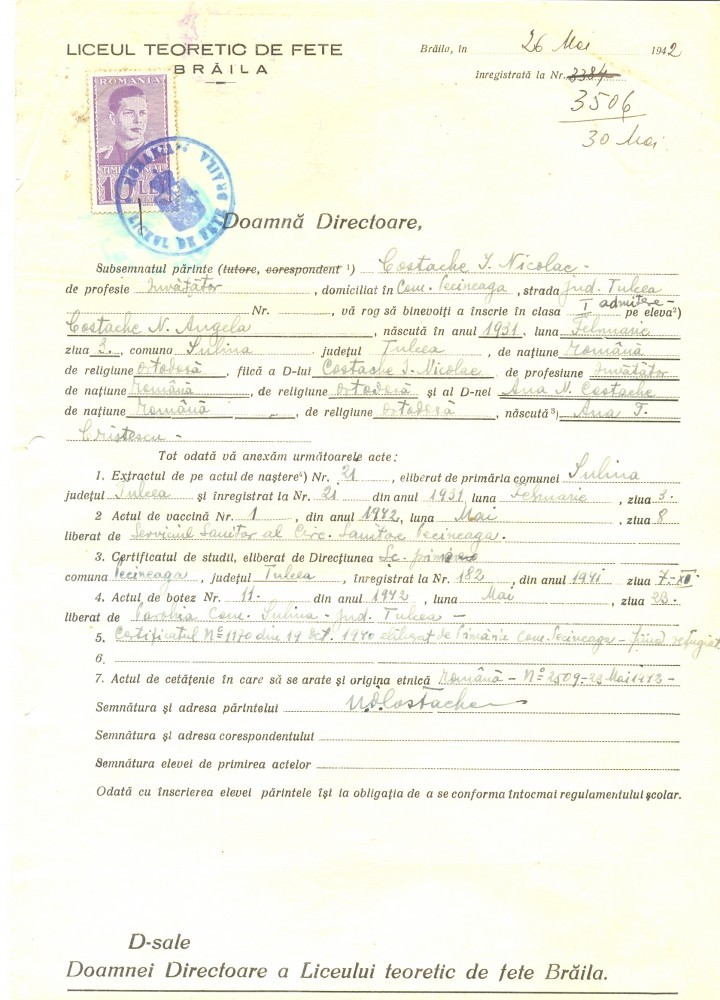 LICEUL TEORETIC DE FETE
BRĂILA
Brăila, în 26 Mai 1942
înregistrată la Nr. 3384
3506
30 Mai
ROMANIA
TIMBRU FISCAL
10 LEI
LICEUL DE FETE BRAILA
Doamnă Directoare,
Subsemnatul părinte (tutore, corespondent ¹) Costache I. Nicolae -
de profesie învățător, domiciliat în Com. Pecineaga, strada jud. Tulcea
Nr. , vă rog să binevoiți a înscrie în clasa I admitere - pe eleva²)
Costache N. Angela, născută în anul 1931, luna Februarie
ziua 3., comuna Sulina județul Tulcea, de națiune Română
de religiune ortodoxă, fiică a D-lui Costache I. Nicolae, de profesiune învățător
de națiune Română, de religiune ortodoxă și al D-nei Ana N. Costache
de națiune Română, de religiune ortodoxă, născută³) Ana T.
Cristescu -
Tot odată vă anexăm următoarele acte:
1. Extractul de pe actul de naștere⁴) Nr. 21, eliberat de primăria comunei Sulina
județul Tulcea și înregistrat la Nr. 21 din anul 1931, luna Februarie, ziua 3.
2 Actul de vaccină Nr. 1, din anul 1942, luna Mai, ziua 8
liberat de Serviciul Sanitar al Circ. Sanitare Pecineaga.
3. Certificatul de studii, eliberat de Direcțiunea Sc. primare
comuna Pecineaga, județul Tulcea, înregistrat la Nr. 182, din anul 1941 ziua 7-XII
4. Actul de botez Nr. 11. din anul 1942, luna Mai, ziua 23.
liberat de Parohia Com. Sulina - jud. Tulcea -
5. Certificatul Nº 1170 din 19 Oct. 1940 eliberat de Primăria Com. Pecineaga - fiind refugiat
6.
7. Actul de cetățenie în care să se arate și origina etnică Română - Nº 2509-23 Mai 1942 -
Semnătura și adresa părintelui N. Costache
Semnătura și adresa corespondentului
Semnătura elevei de primirea actelor
Odată cu înscrierea elevei părintele își ia obligația de a se conforma întocmai regulamentului școlar.
D-sale
Doamnei Directoare a Liceului teoretic de fete Brăila.